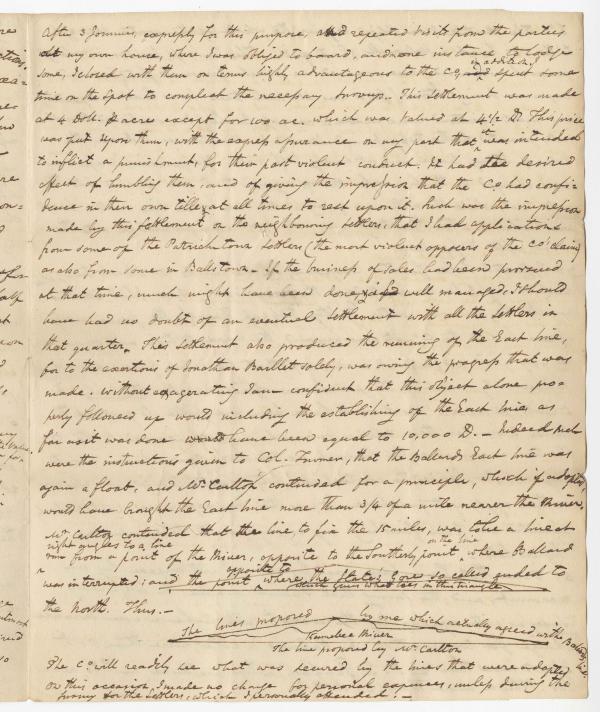 After 3 Journies, expressly for this purpose, and repeated visits from the parties
at my own house, where I was obliged to board, and in one instance, to lodge
some, I closed with them on terms highly advantageous to the Co, and in addition, I spent some
time on the spot to compleat the necessary surveys. This settlement was made
at 4 Dolls. acres except for 100 ac. which was valued at 4 1/2 D. This price
was put upon them, with the express assurance on my part that it was intended
to inflict a punishment, for their past violent conduct. It had the desired
effect of humbling them, and of giving the impression that the Co had confi-
dence in their own title, at all times to rest upon it. Such was the impression
made by this settlement on the neighbouring settlers, that I had applications
from some of the Patrick town settlers (the most violent opposers of the Co's claim)
as also from some in Ballstown - If the business of sales had been pursued
at that time, much might have been done, & if well managed, I should
have had no doubt of an eventual settlement with all the settlers in
that quarter. This settlement also produced the running of the East line,
for to the exertions of Jonathan Bartlet solely, was owing the progress that was
made. without exagerating I am confident that this object alone pro-
perly followed up would including the establishing of the East lines as
far as it was done would have been equal to 10,000 D. - Indeed such
were the instructions given to Col. Turner, that the Ballards East line was
again afloat, and Mr. Carlton contended for a principle, which if adopted,
would have brought the East line more than 3/4 of a mile nearer the River,
Mr. Carlton contended that the line to fix the 15 miles, was to be a line at
right angles to a line
from a point of the River, opposite to the Southerly point on the line where Ballard
was interrupted; and the point opposite to where the State's Gore so called ended to
the North. Thus. -
The lines proposed by me which actually agreed with the Ballards line
Kennebec River
The line proposed by Mr. Carlton
The Co. will readily see what was secured by the lines that were adopted
on this occasion, I made no charge for personal expences, unless during the
survey for the settlers, which I personally attended. -